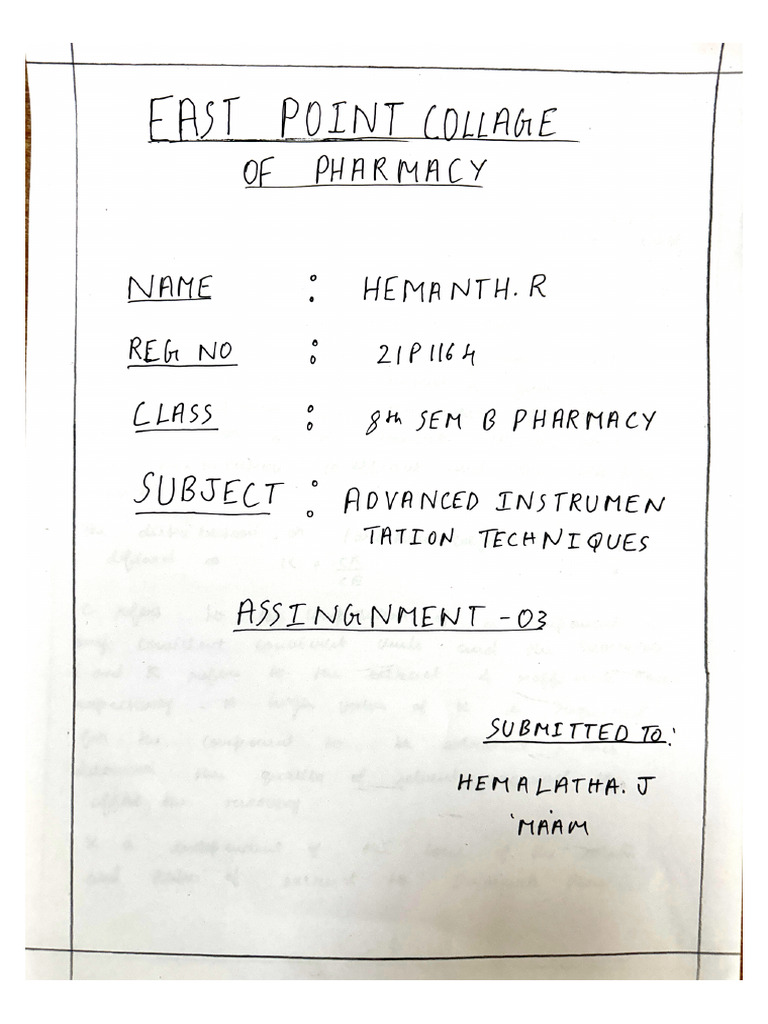 EAST POINT COLLAGE
OF PHARMACY
NAME : HEMANTH. R
REG NO : 21P1164
CLASS : 8th SEM B PHARMACY
SUBJECT : ADVANCED INSTRUMEN
TATION TECHNIQUES
ASSINGNMENT - 03
SUBMITTED TO:
HEMALATHA. J
MAAM